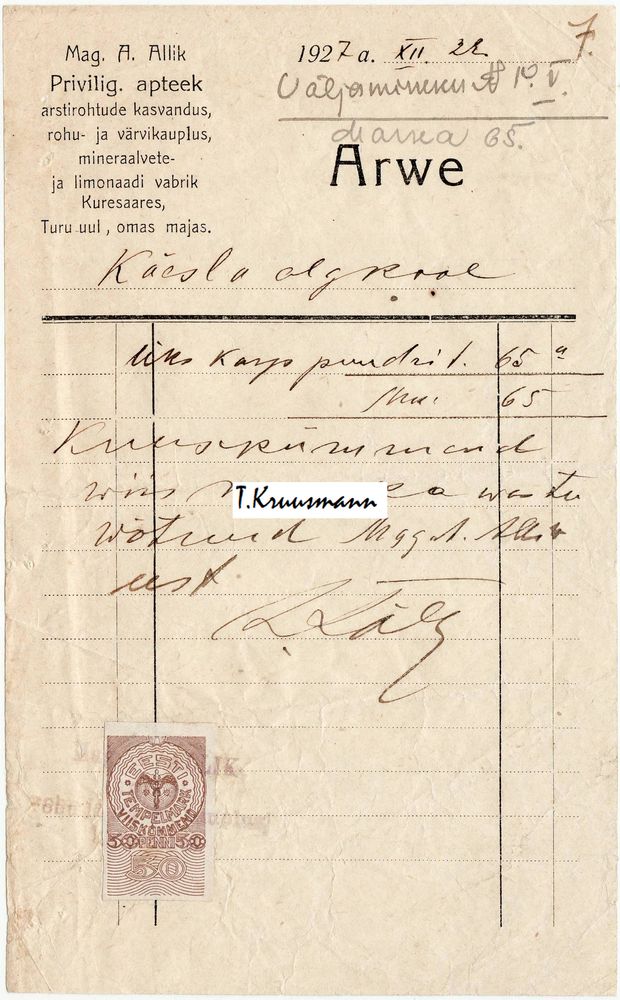 Mag. A. Allik
Privilig. apteek
arstirohtude kasvandus,
rohu- ja värvikauplus,
mineraalvete-
ja limonaadi vabrik
Kuresaares,
Turu uul, omas majas.
7.
1927 a. XII. 22.
Väljamineku № 10. V.
marka 65.
Arwe
Käesla algkool
üks karp puudrit. 65 a
Mk. 65
Kuuskümmend
wiis wastu
T.Kruusmann
wõtnud Mag. A. Allik
eest
LIK.
EESTI
TEMPELMARK
VIISKÜMMEND
50 PENNI 50
50